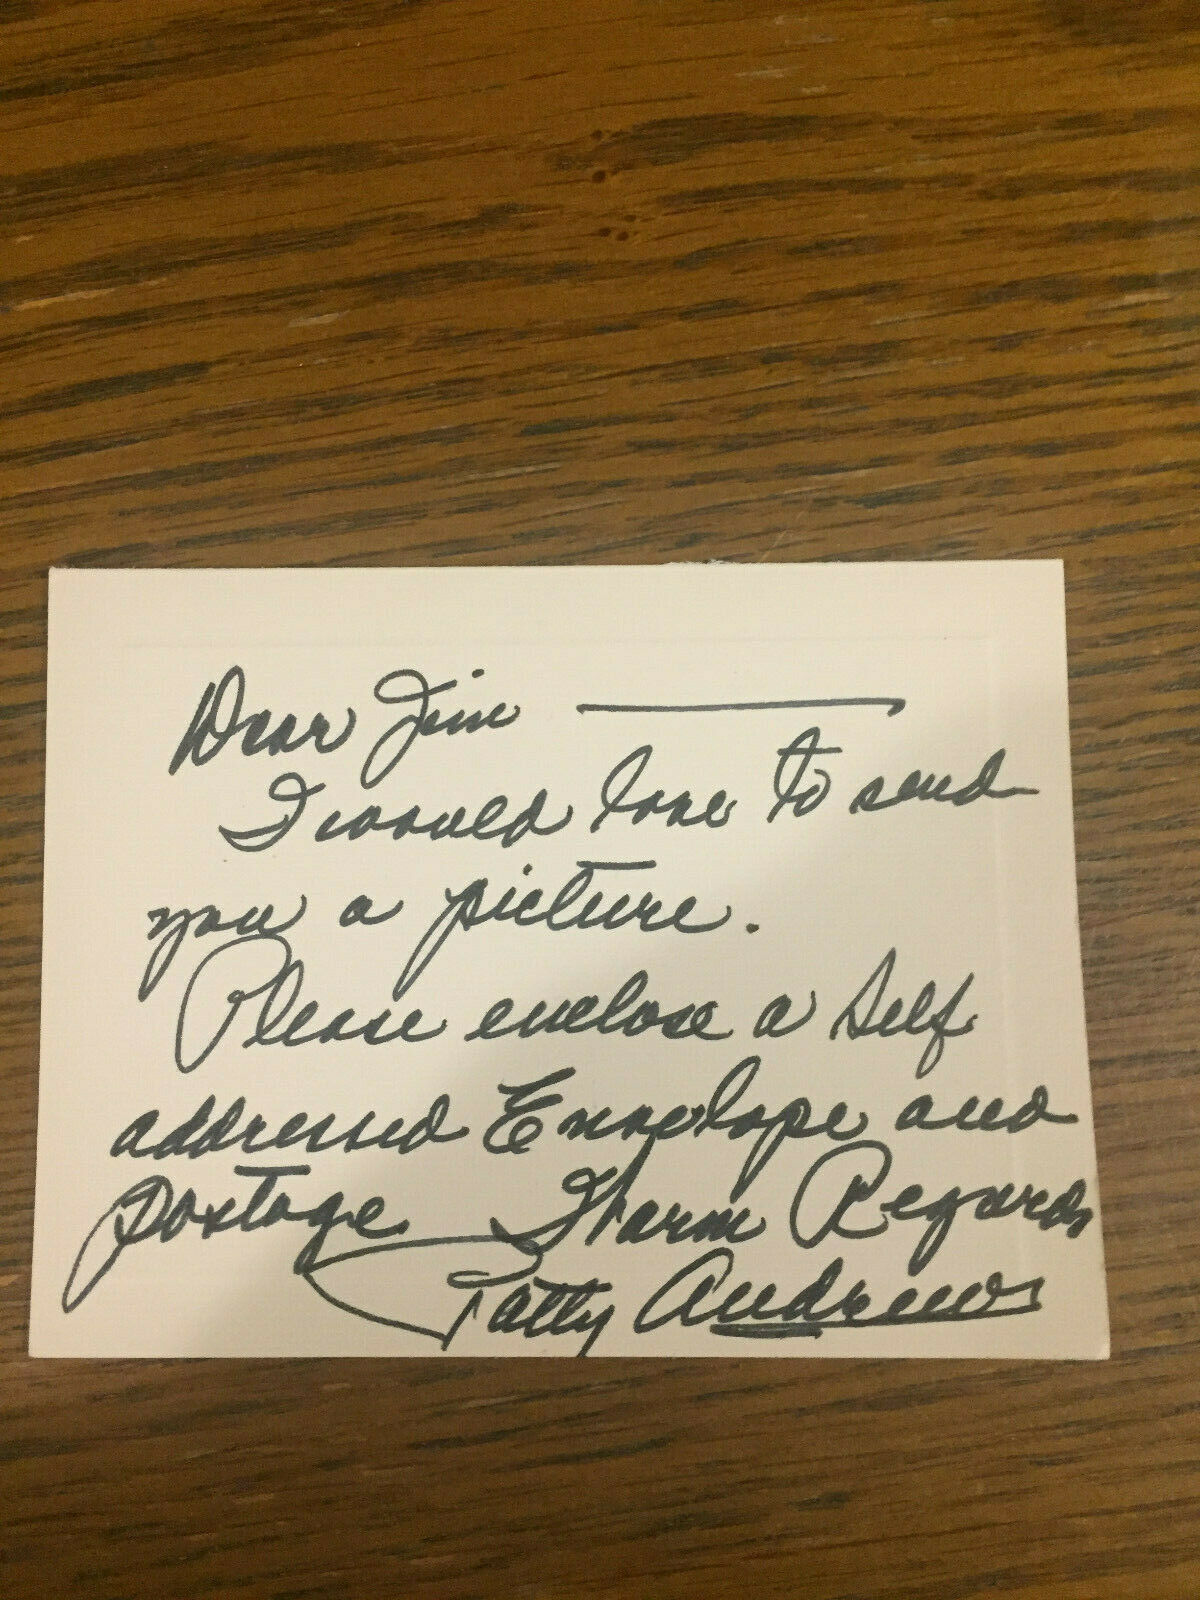 Dear Jim —
I would love to send
you a picture.
Please enclose a Self
addressed Envelope and
postage Warm Regards
Patty Andrews